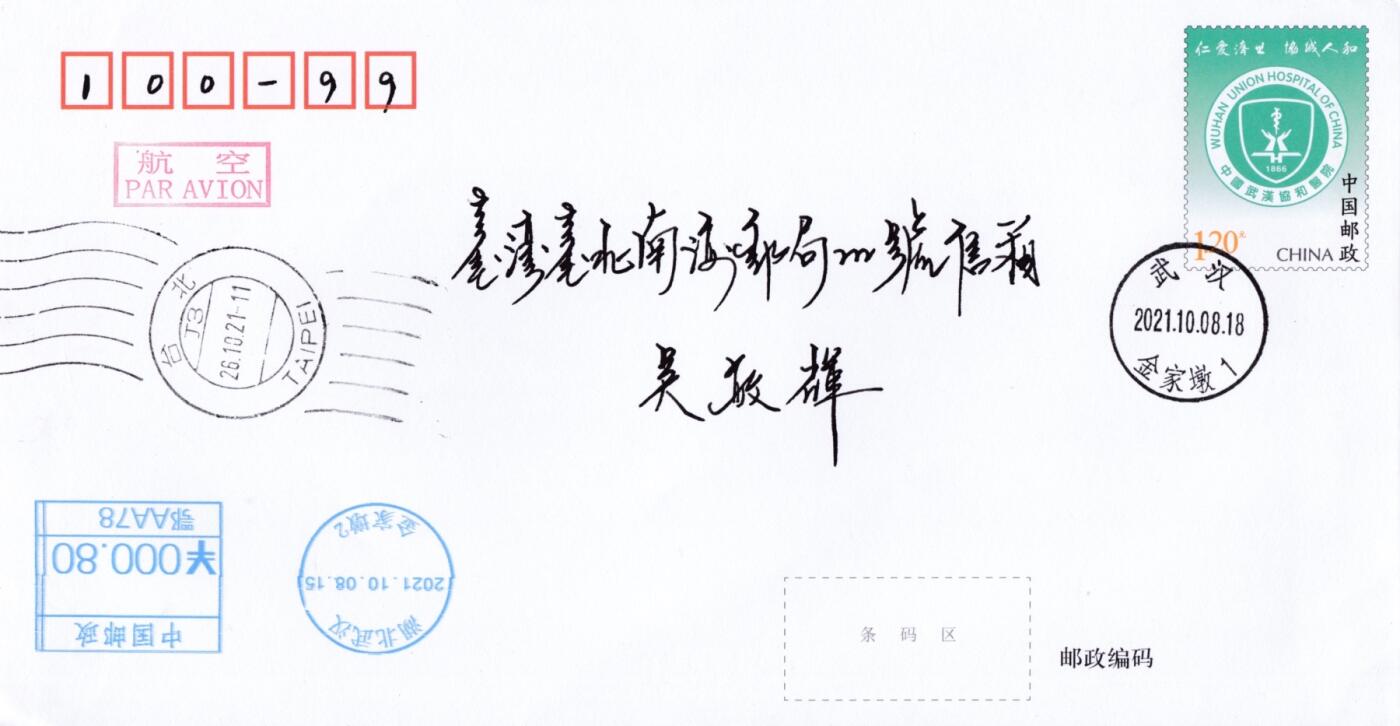 仁愛濟世 協诚人和
WUHAN UNION HOSPITAL OF CHINA
1866
中國武漢協和醫院
中国邮政
120分
CHINA
100-99
航空
PAR AVION
臺灣臺北南海郵局111號信箱
台北
J3
26.10.21-11
TAIPEI
武汉
2021.10.08.18
金家墩1
鄂AA78
¥000.80
中国邮政
金家墩2
2021.10.08.15
湖北武汉
条码区
邮政编码